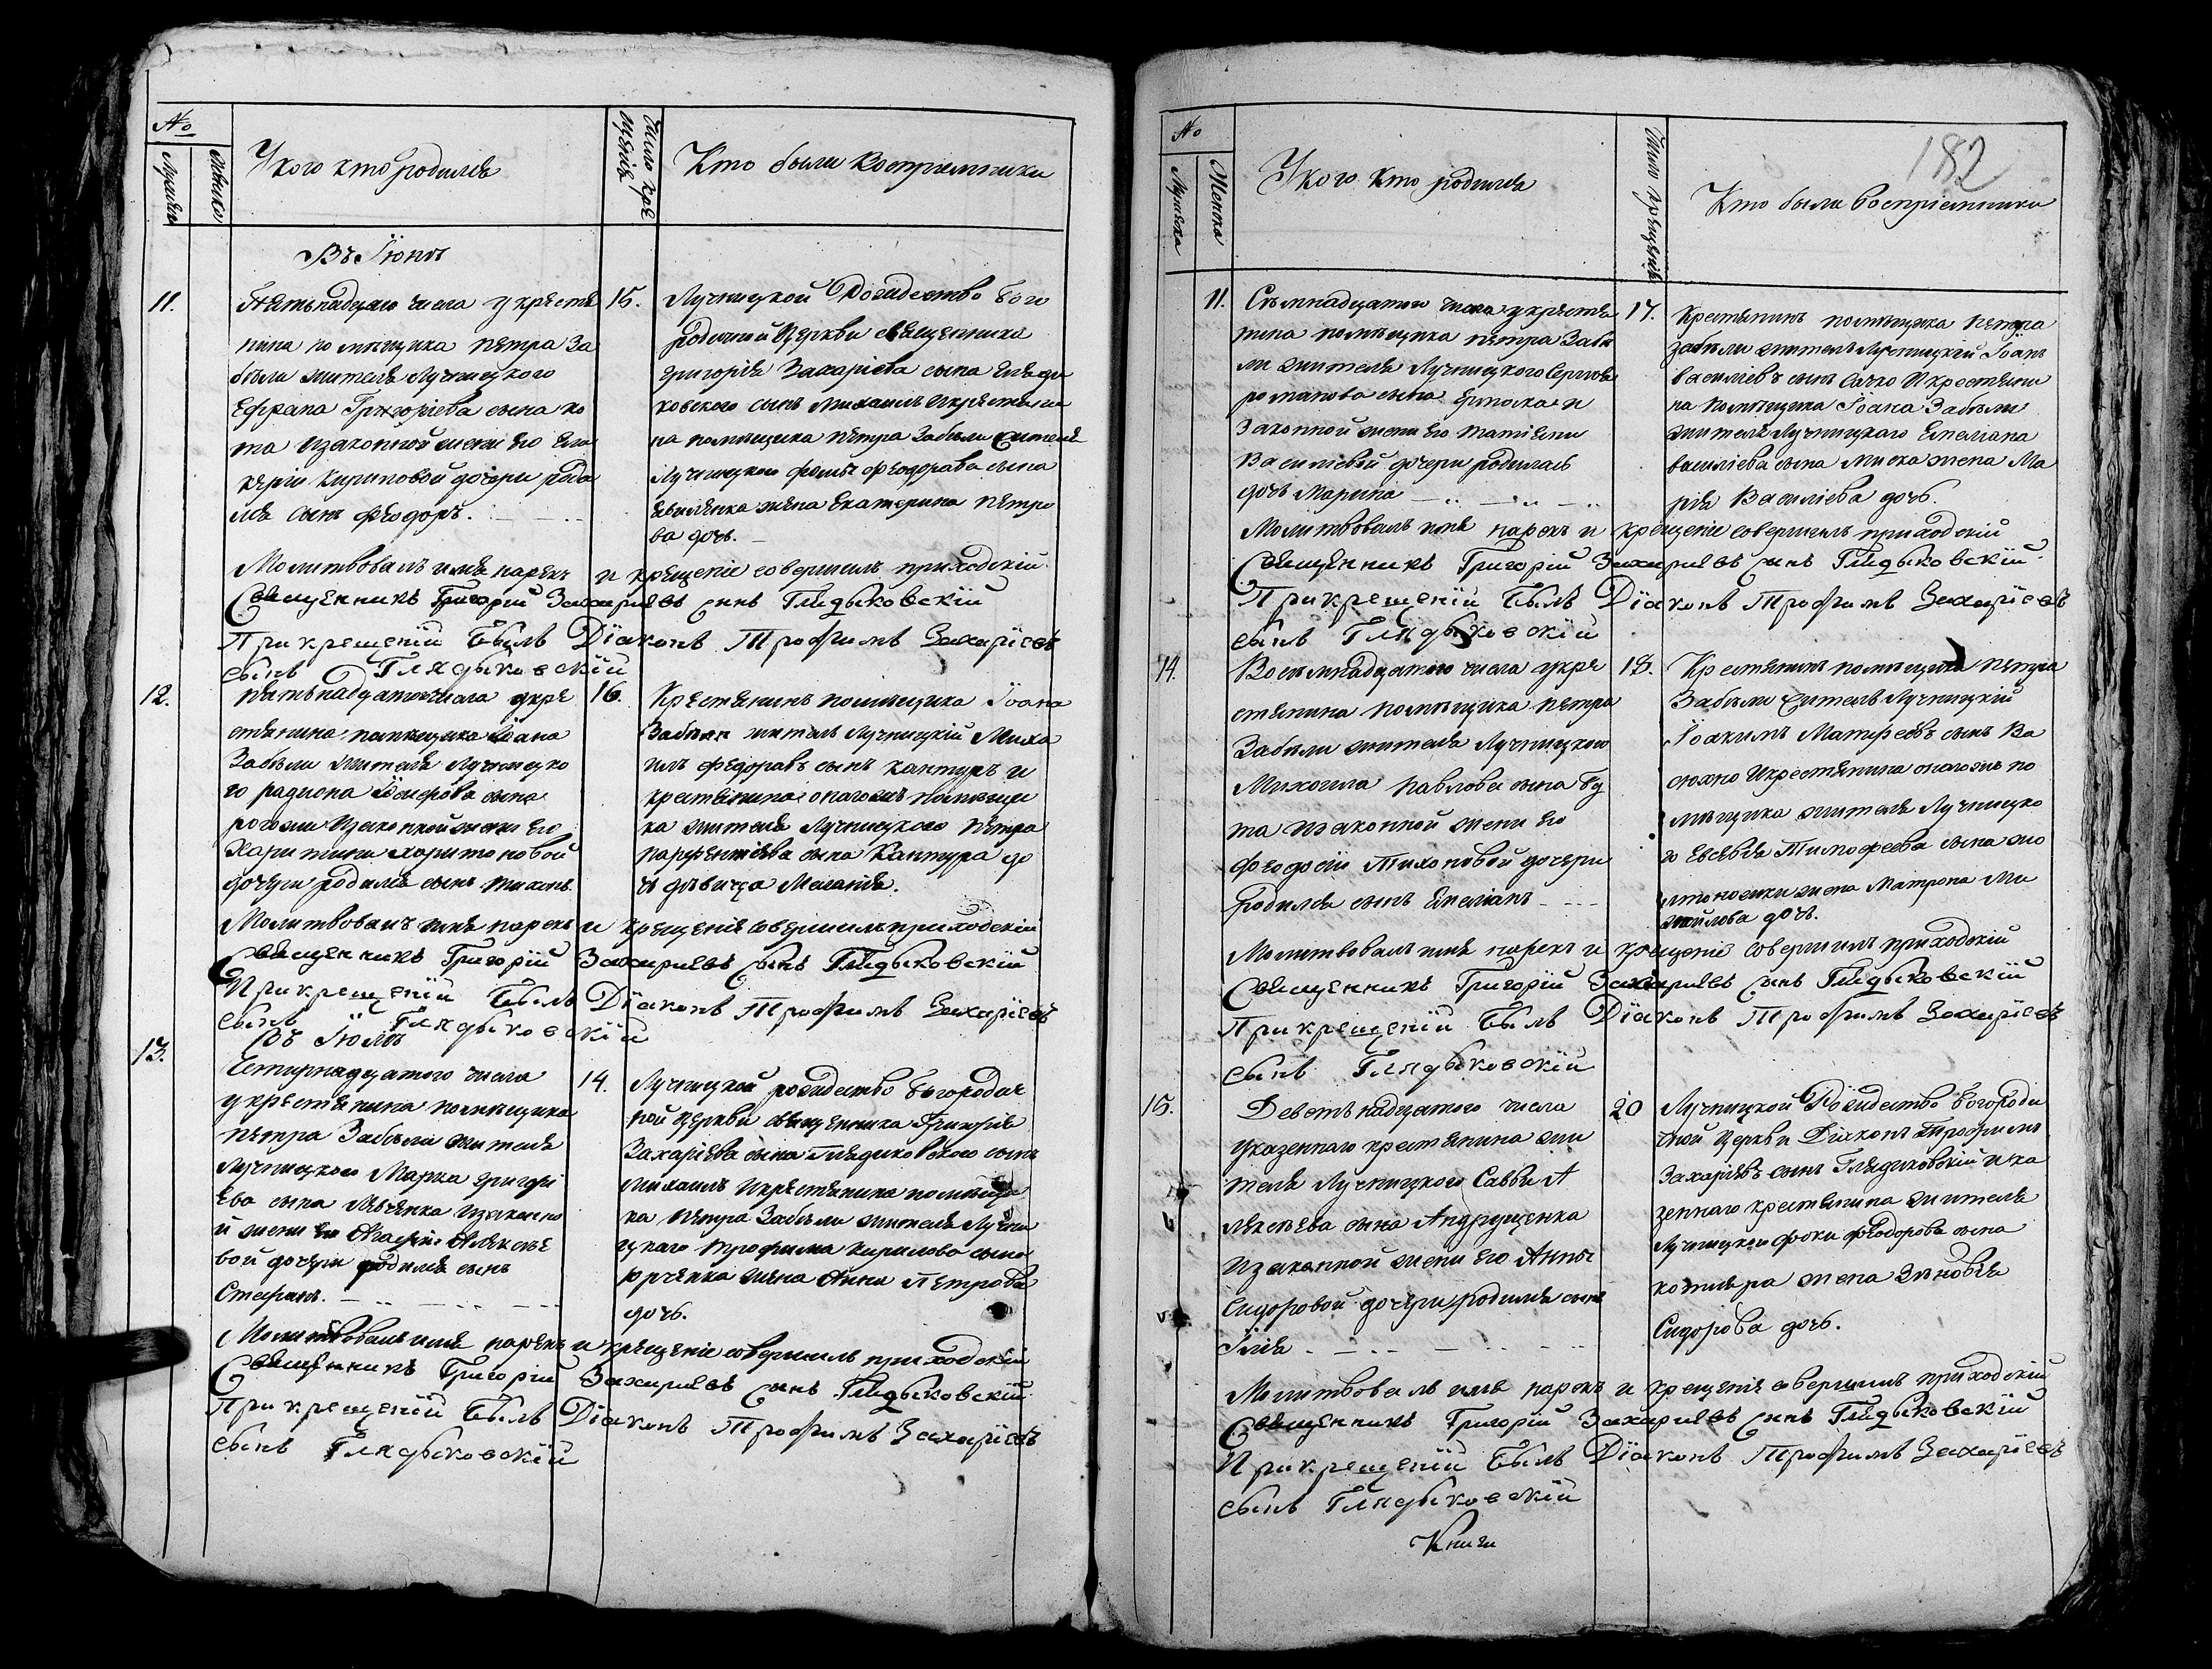 №
Мужска
Женско
У кого кто родился
Число кре
щенія
Кто были Восприемники
Въ Іюнѣ
11.
Пятьнадцаго числа у крестя
нина помѣщика Петра За
бѣли жителя Лучницкого
Ефрана Григоріева сына ко
та изаконной жени его
Кириловой дочери роди
лся сынъ Феодоръ.
15.
Лучницкой Рождество Бого
родичной Церкви священника
Григорія Захаріева сына Гляды
ковского сынъ Михаилъ икрестяни
на помѣщика Петра Забѣли жителя
Лучницкого Фомы Феодорава сына
жена Екатерина Петро
ва дочь.
Молитвовалъ имя нарекъ и крещеніе совершилъ приходскій
Священникъ Григорій Захаріевъ сынъ Глядыковскій
При крещеніи Былъ Діаконъ Трофимъ Захаріевъ
сынъ Глядыковскій
12.
Пятьнадцатогочисла укре
стянина помѣщика Іоана
Забѣли жителя Лучницко
го радиона сына
изаконной жени его
Харитини харитоновой
дочери родился сынъ тихонъ
16.
Крестянинъ помѣщика Іоана
Забѣли житель Лучницкій Миха
илъ Федоравъ сынъ Кантуръ и
крестянина онагожъ помѣщи
ка жителя Лучницкого Петра
парфентіева сына Кантура до
чь дѣвица Меланія.
Молитвовалъ имя нарекъ и крещеніе совершилъ приходскій
Священникъ Григорій Захаріевъ сынъ Глядыковскій
При крещеніи Былъ Діаконъ Трофимъ Захаріевъ
сынъ Глядыковскій
Въ Іюлѣ
13.
Четирнадцатого числа
у крестянина помѣщика
Петра Забѣли жителя
Лучницкого Марка григорі
ева сына изаконно
й жени его Агафіи Алексѣе
вой дочери родился сынъ
Стефанъ.
14.
Лучницкой рождество Богородич
ной церкви священника Григорія
Захаріева сына Глядиковского сынъ
михаилъ икрестянина помѣщи
ка Петра Забѣли жителя Лучни
цкаго Трофима Кирилова сына
юрченка жена Анна Петрова
дочь.
Молитвовалъ имя нарекъ и крещеніе совершилъ приходскій
Священникъ Григорій Захаріевъ сынъ Глядыковскій
При крещеніи Былъ Діаконъ Трофимъ Захаріевъ
сынъ Глядыковскій
182
№
Мужеска
Женска
У кого кто родился
Число крещенія
Кто были Восприемники
11.
Семнадцатого числа укрестя
нина помѣщика Петра Забѣ
ли жителя Лучницкого Сергѣя
романова сына и
Законной жени его татіяни
Василіевой дочери родилась
дочь Марина
17.
Крестянинъ помѣщика Петра
забѣли житель Лучницкій Іоанъ
Василіевъ сынъ Сачко икрестяни
на помѣщика Іоана Забѣли
жителя Лучницкаго Емеліана
василіева сына жена Ма
рія Василіева дочь.
Молитвовалъ имя нарекъ и крещеніе совершилъ приходскій
Священникъ Григорій Захаріевъ сынъ Глядыковскій
При крещеніи Былъ Діаконъ Трофимъ Захаріевъ
сынъ Глядыковскій
14.
Восемнадцатого числа укре
стянина помѣщика петра
Забѣли жителя Лучницкого
Михаила Павлова сына Бу
та изаконной жени его
Феодосіи Тихоновой дочери
Родился сынъ Емеліанъ
18.
Крестянинъ помѣщика Петра
Забѣли житель Лучницкій
Іоакимъ Матфеевъ сынъ Ва
сюхно икрестянина онагожъ по
мѣщика жителя Лучницко
го Евсевія Тимофеева сына
жена Матрона Ми
хайлова дочь.
Молитвовалъ имя нарекъ и крещеніе совершилъ приходскій
Священникъ Григорій Захаріевъ сынъ Глядыковскій
При крещеніи Былъ Діаконъ Трофимъ Захаріевъ
сынъ Глядыковскій
15.
Деветьнадцатого числа
Указеннаго крестянина жи
теля Лучницкого Саввы А
лексѣева сына Андрущенка
изаконной жени его Анны
Сидоровой дочери родился сынъ
Ілія
20
Лучницкой Рождество Богороди
чной церкви Діаконъ трофимъ
Захаріевъ сынъ Глядиковскій ика
зеннаго крестянина жителя
Лучницкого фоки Феодорова сына
котляра жена Зѣновія
Сидорова дочь.
Молитвовалъ имя нарекъ и крещеніе совершилъ приходскій
Священникъ Григорій Захаріевъ сынъ Глядыковскій
При крещеніи Былъ Діаконъ Трофимъ Захаріевъ
сынъ Глядыковскій
Книги